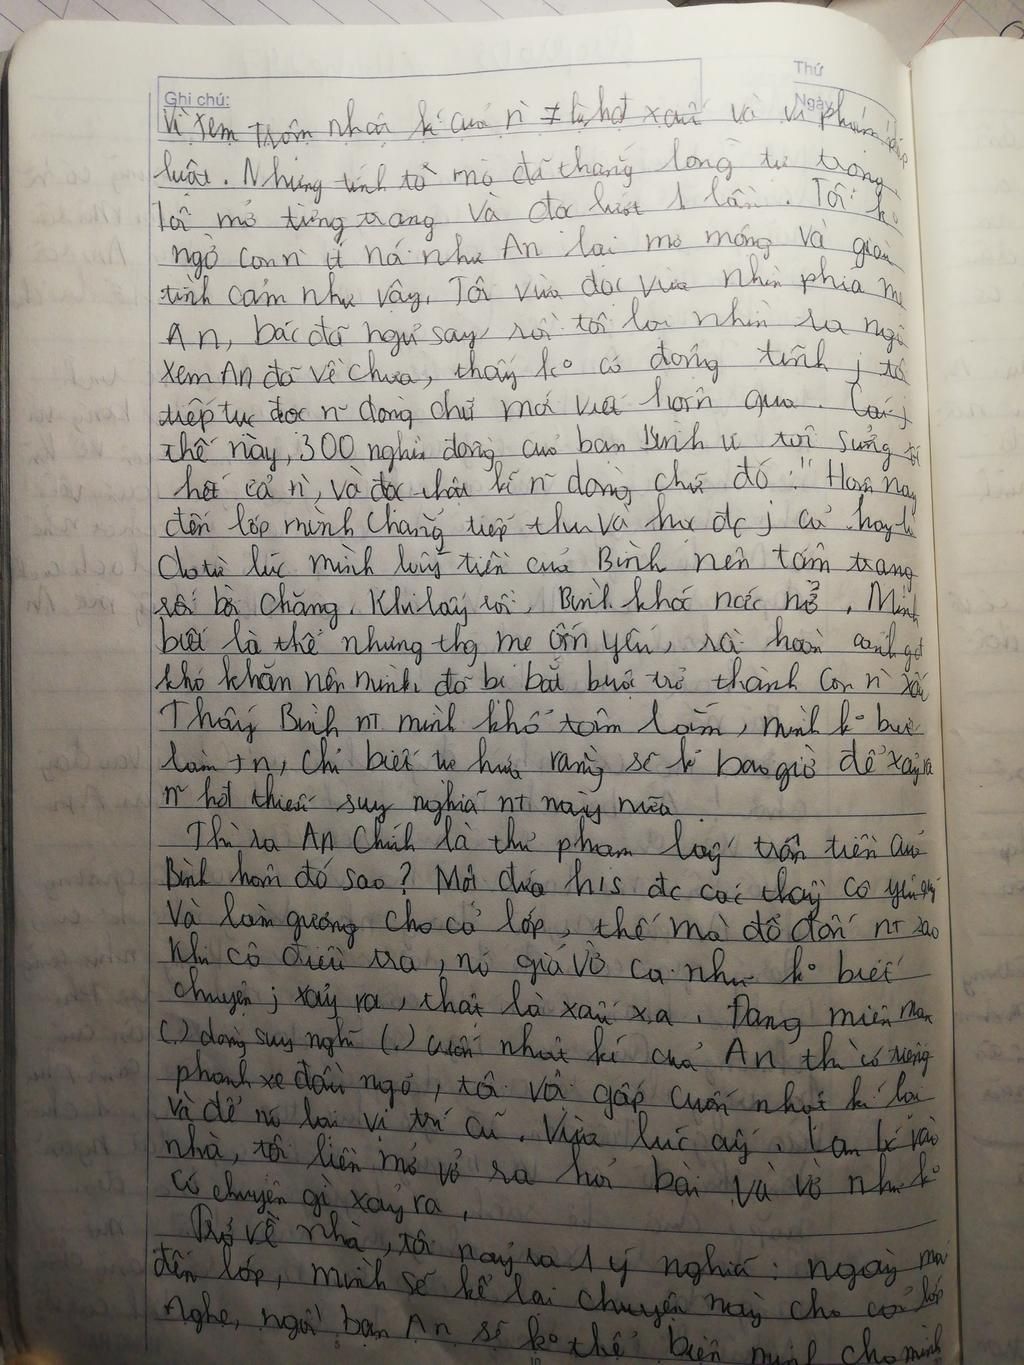 Thứ
Ghi chú:
Ngày
Vì xem trộm nhật kí của n ≠ là hđ xấu và vi phạm pháp
luật. Nhưng tính tò mò đã thắng lòng tự trọng
Tôi mở từng trang và đọc lướt 1 lần. Tôi ko
ngờ con n ít nói như An lại mơ mộng và giàu
tình cảm như vậy. Tôi vừa đọc vừa nhìn phía mẹ
An, bác đã ngủ say rồi tôi lại nhìn ra ngõ
xem An đã về chưa, thấy ko có động tĩnh j tôi
tiếp tục đọc n~ dòng chữ mới viết hôm qua. Cái j
thế này, 300 nghìn đồng của bạn Bình ư tôi sững
hết cả n, và đọc thật kĩ n~ dòng chữ đó: "Hôm nay
đến lớp mình chẳng tiếp thu và học đc j cả hay là
do từ lúc mình lấy tiền của Bình nên tâm trạng
rối bời chăng. Khi lấy rồi, Bình khóc nức nở. Mình
biết là thế nhưng thg mẹ ốm yếu, và hoàn cảnh gđ
khó khăn nên mình đã bị bắt buộc trở thành con n xấu
Thấy Bình nt mình khổ tâm lắm, mình ko biết
làm tn, chỉ biết tự hứa rằng sẽ k bao giờ để xảy ra
n~ hđ thiếu suy nghĩ nt này nữa
Thì ra An chính là thủ phạm lấy trộm tiền của
Bình hôm đó sao? Một đứa h/s đc các thầy cô yêu quý
và làm gương cho cả lớp, thế mà đồ đốn nt sao
Khi cô điều tra, nó giả vờ cứ như ko biết
chuyện j xảy ra, thật là xấu xa. Đang miên man
(.) dòng suy nghĩ (.) cuốn nhật kí của An thì có tiếng
phanh xe đầu ngõ, tôi vội gấp cuốn nhật kí lại
và để nó lại vị trí cũ. Vừa lúc ấy, Lan bế vào
nhà, tôi liền mở vở ra hỏi bài và vờ như ko
có chuyện gì xảy ra,
Trở về nhà, tôi nảy ra 1 ý nghĩ: ngày mai
đến lớp, mình sẽ kể lại chuyện này cho cả lớp
nghe, người bạn An sẽ ko thể biện minh cho mình